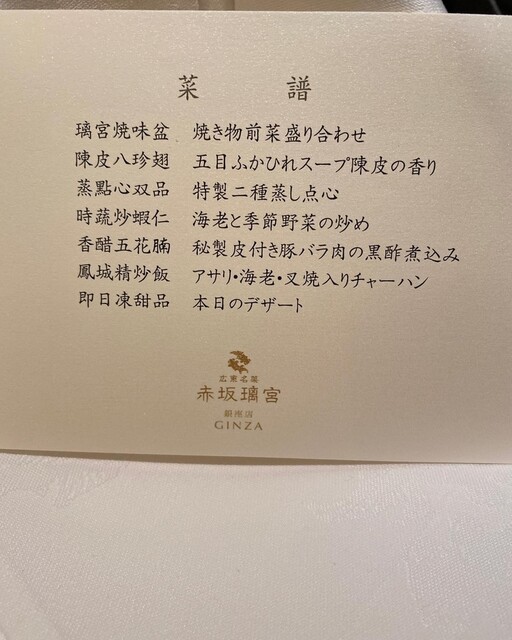 菜 譜
璃宮焼味盆 焼き物前菜盛り合わせ
陳皮八珍翅 五目ふかひれスープ陳皮の香り
蒸點心双品 特製二種蒸し点心
時蔬炒蝦仁 海老と季節野菜の炒め
香醋五花腩 秘製皮付き豚バラ肉の黒酢煮込み
鳳城精炒飯 アサリ・海老・叉焼入りチャーハン
即日凍甜品 本日のデザート
広東名菜
赤坂璃宮
銀座店
GINZA